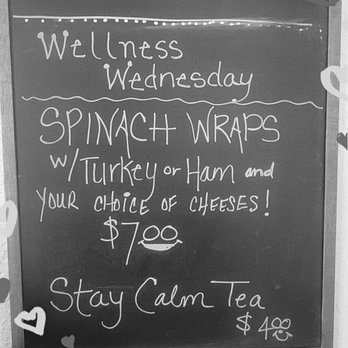 Wellness
Wednesday
SPINACH WRAPS
w/ Turkey or Ham and
YOUR CHOICE OF CHEESES!
$7.00
Stay Calm Tea
$4.00